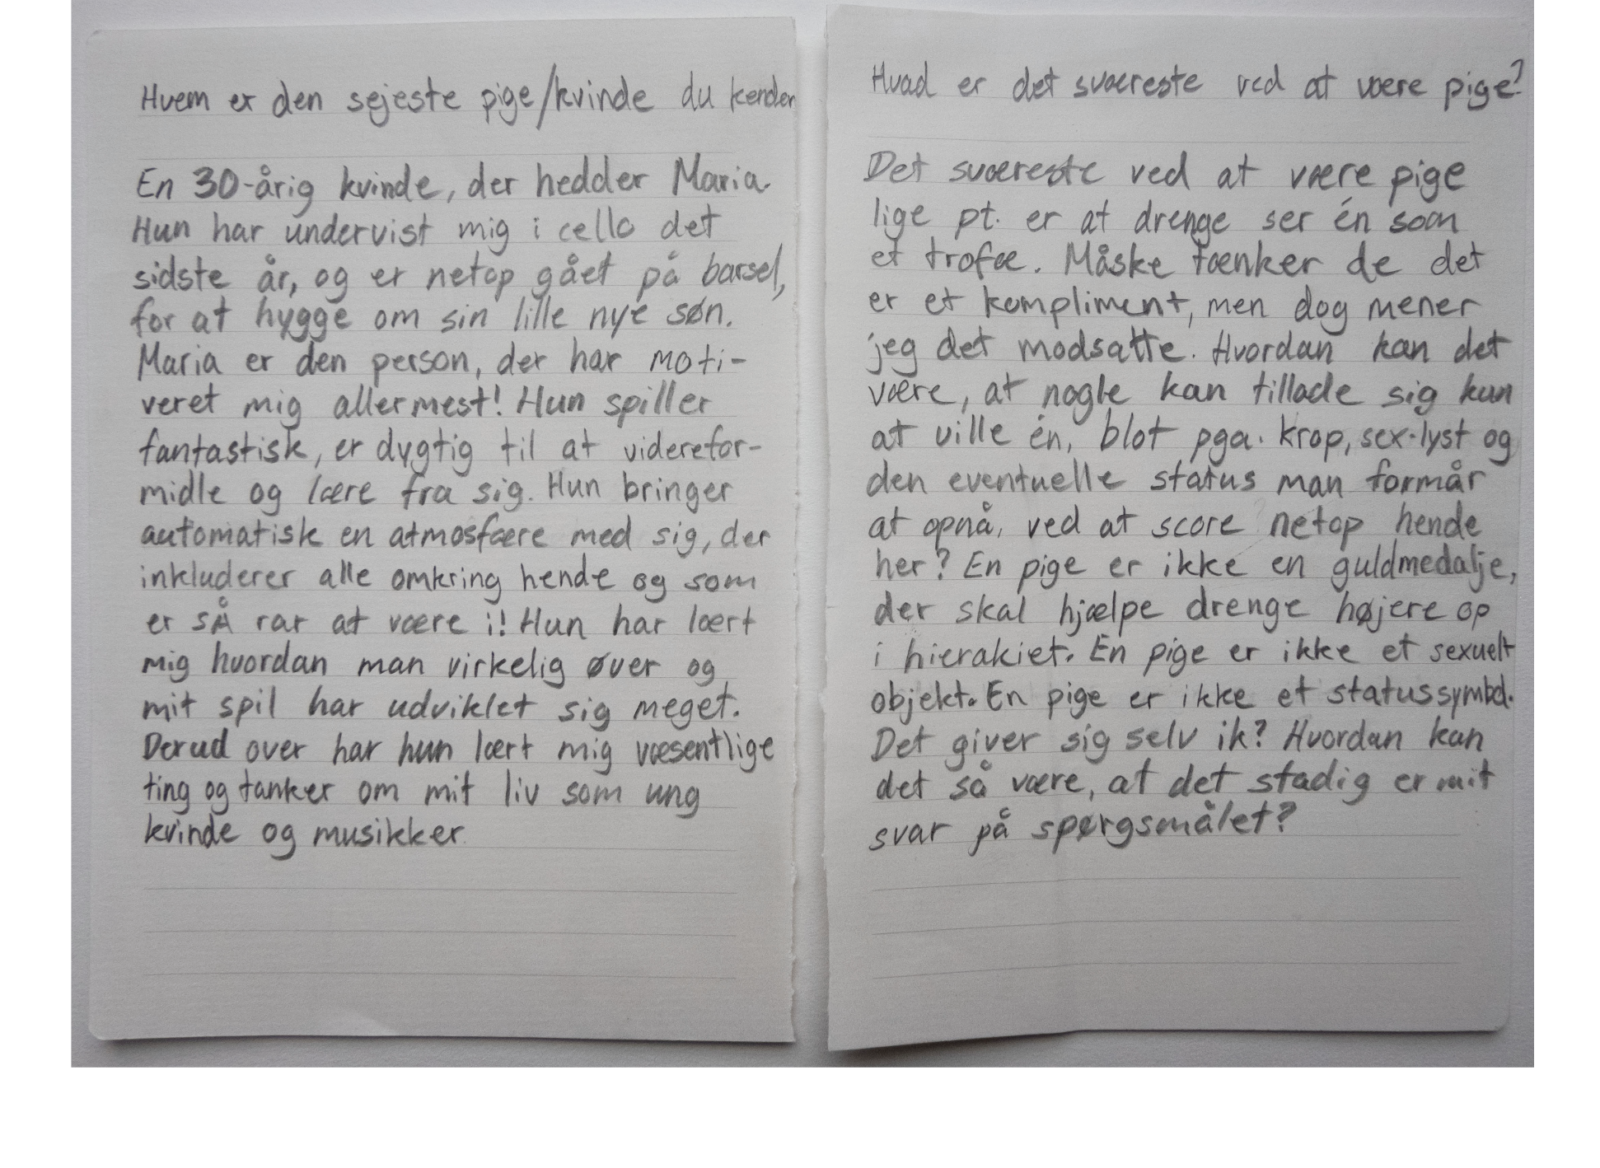 Hvem er den sejeste pige/kvinde du kender
En 30-årig kvinde, der hedder Maria.
Hun har undervist mig i cello det
sidste år, og er netop gået på barsel,
for at hygge om sin lille nye søn.
Maria er den person, der har moti-
veret mig allermest! Hun spiller
fantastisk, er dygtig til at viderefor-
midle og lære fra sig. Hun bringer
automatisk en atmosfære med sig, der
inkluderer alle omkring hende og som
er SÅ rar at være i! Hun har lært
mig hvordan man virkelig øver og
mit spil har udviklet sig meget.
Derud over har hun lært mig væsentlige
ting og tanker om mit liv som ung
kvinde og musikker.
Hvad er det sværeste ved at være pige?
Det sværeste ved at være pige
lige pt. er at drenge ser én som
et trofæ. Måske tænker de det
er et kompliment, men dog mener
jeg det modsatte. Hvordan kan det
være, at nogle kan tillade sig kun
at ville én, blot pga. krop, sex-lyst og
den eventuelle status man formår
at opnå, ved at score netop hende
her? En pige er ikke en guldmedalje,
der skal hjælpe drenge højere op
i hierakiet. En pige er ikke et sexuelt
objekt. En pige er ikke et statussymbol.
Det giver sig selv ik? Hvordan kan
det så være, at det stadig er mit
svar på spørgsmålet?